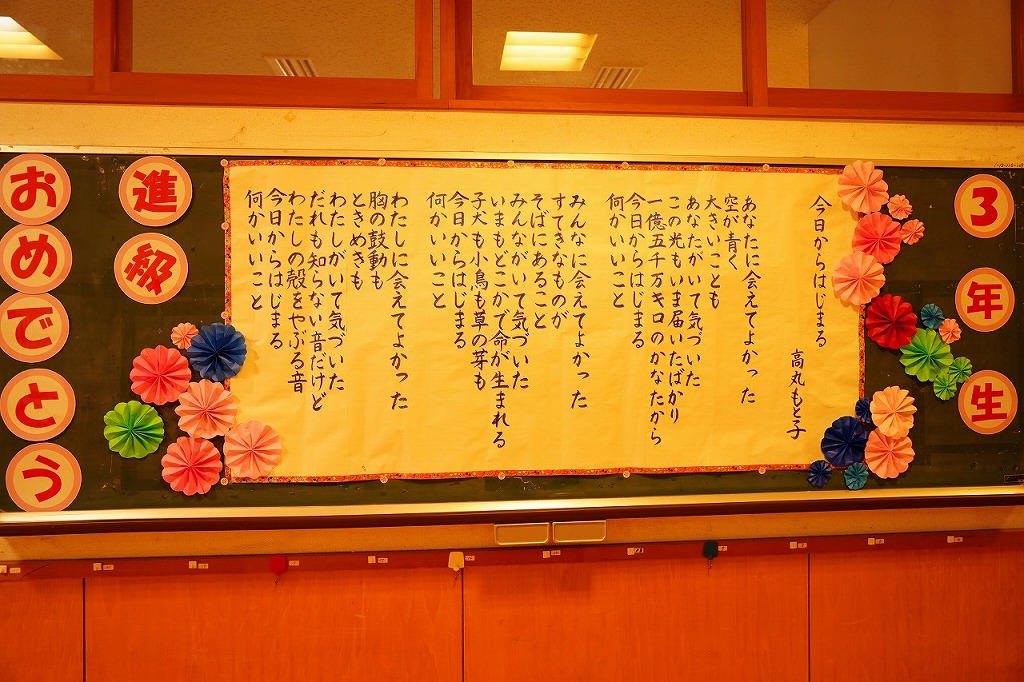 3年生
今日からはじまる
高丸もと子
あなたに会えてよかった
空が青く
大きいことも
あなたがいて気づいた
この光もいま届いたばかり
一億五千万キロのかなたから
今日からはじまる
何かいいこと
みんなに会えてよかった
すてきなものが
そばにあること
みんながいて気づいた
いまもどこかで命が生まれる
子犬も小鳥も草の芽も
今日からはじまる
何かいいこと
わたしに会えてよかった
胸の鼓動も
ときめきも
わたしがいて気づいた
だれも知らない音だけど
わたしの殻をやぶる音
今日からはじまる
何かいいこと
進級
おめでとう